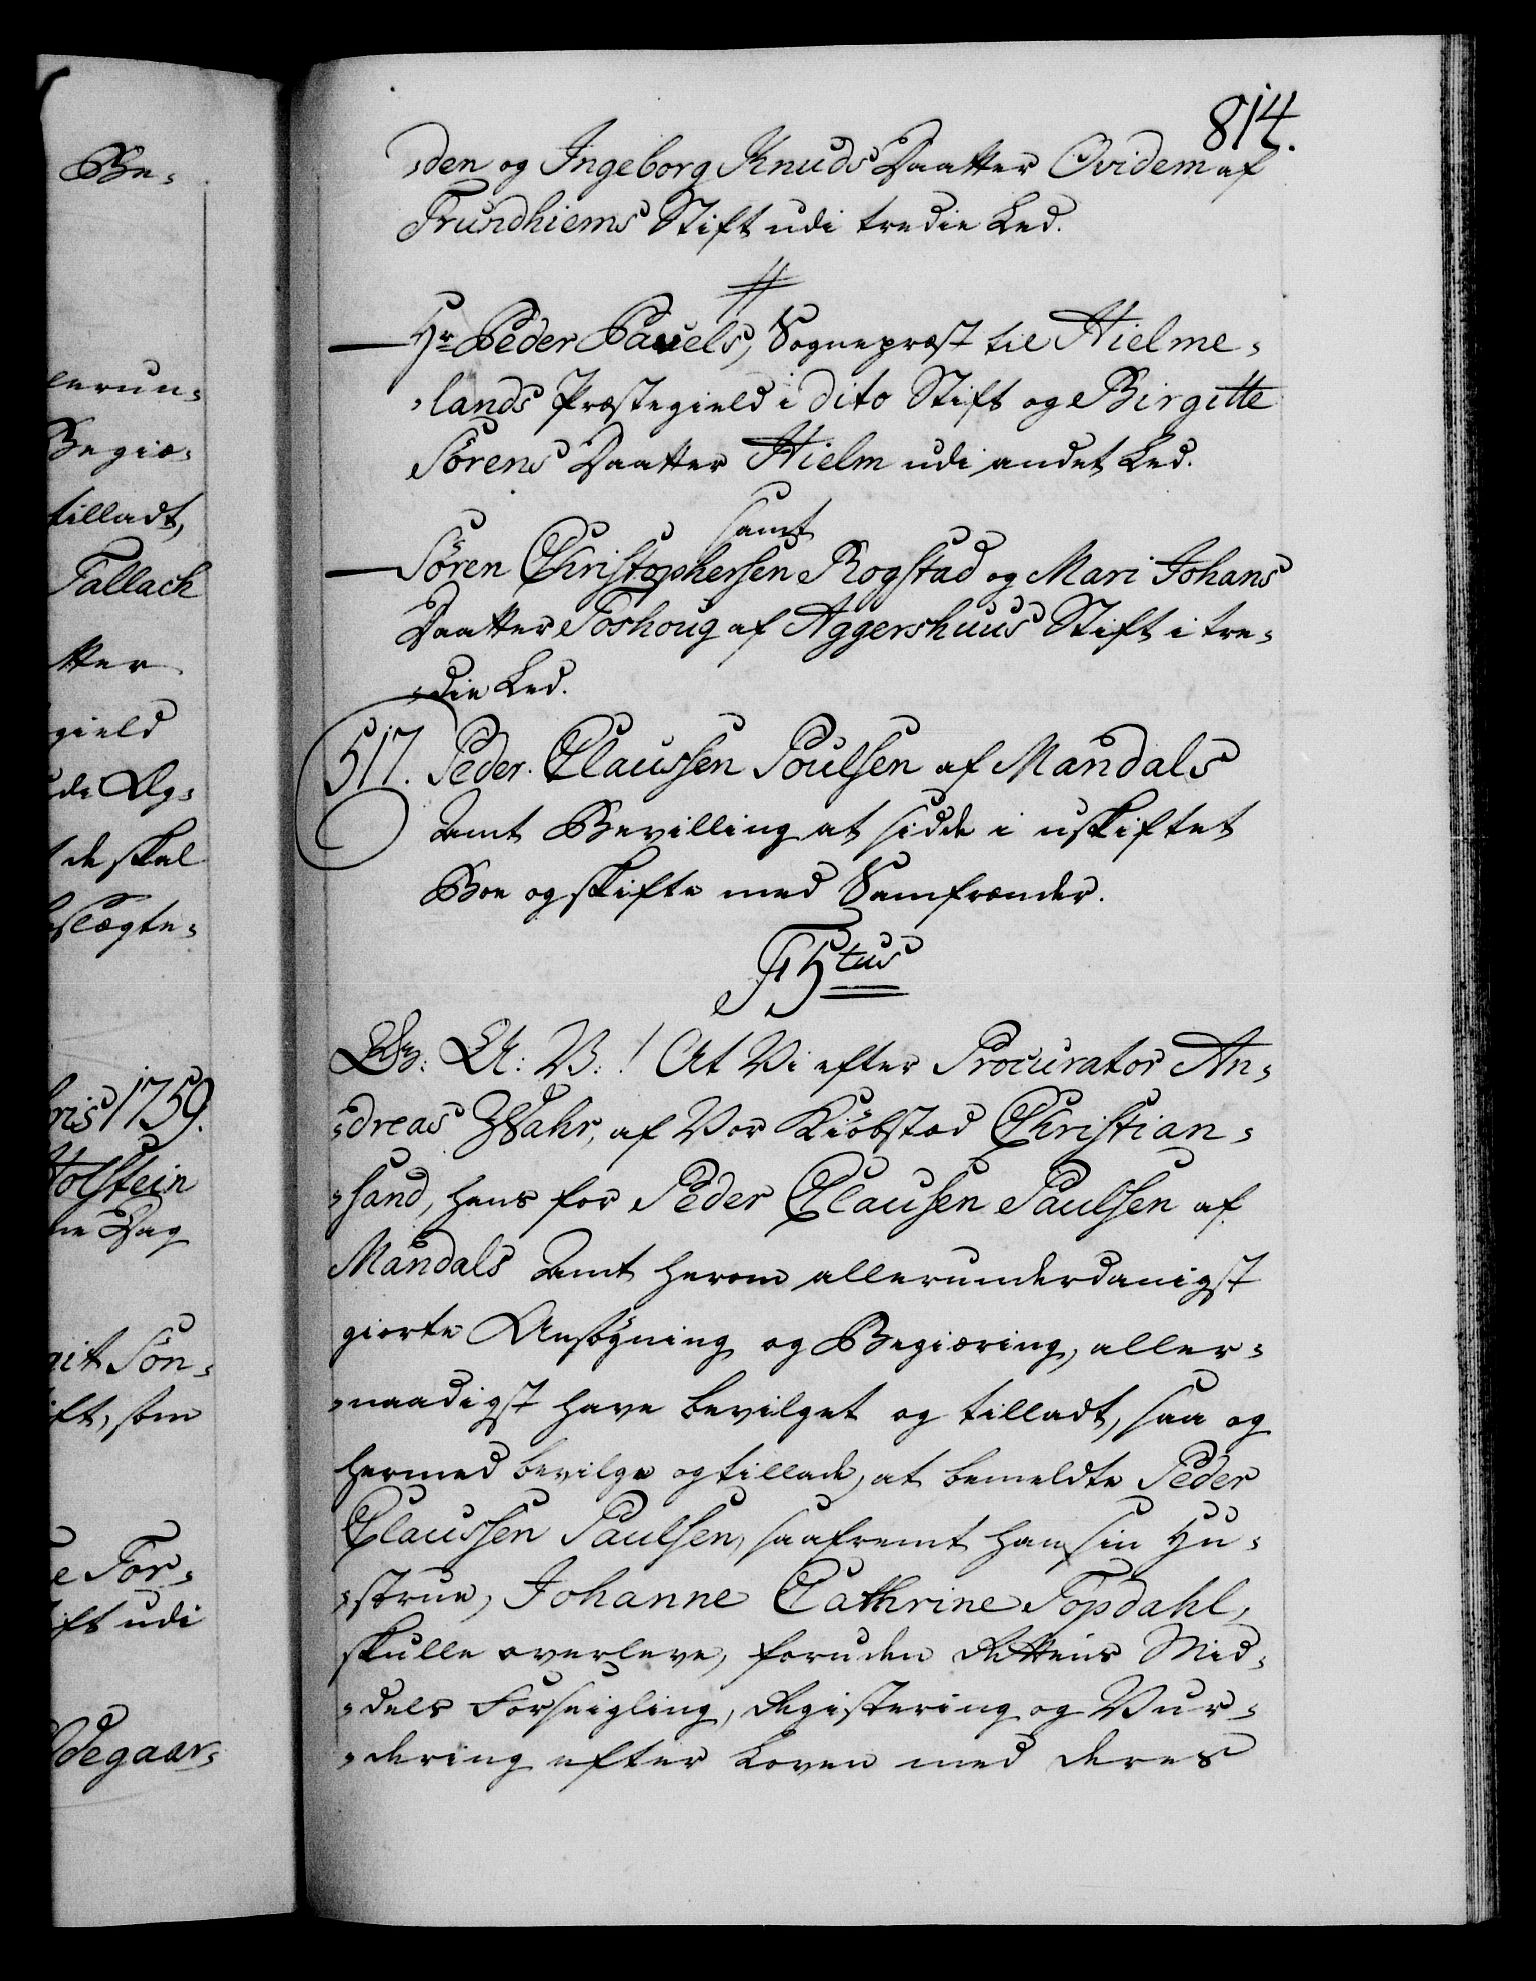 814.
=den og Ingeborg Knuds Daatter Qvidem af
Trundhiems Stift udi tredie Led.
//
— Hr Peder Pauels, Sognepræst til Hielme=
=lands Præstegield i dito Stift og Birgitte
Sørens Daatter Hielm udi andet Led.
samt
— Sören Christophersen Rogstad og Mari Johans
Daatter Foshoug af Aggershuus Stift i tre=
=die Led.
517. Peder Claussen Poulsen af Mandals
Amt Bevilling at sidde i uskiftet
Boe og skifte med Samfrænder.
F 5tus
G: A: V: ! At Vi efter Procurator An=
=dreas Wahr, af Vor Kiøbstad Christian=
=sand, hans for Peder Clausen Paulsen af
Mandals Amt herom allerunderdanigst
giorte Ansøgning og Begiæring, aller=
=naadigst have bevilget og tilladt, saa og
hermed bevilge og tillade, at bemeldte Peder
Claussen Paulsen, saafremt han sin Hu=
=strue, Johanne Cathrine Topdahl,
skulle overleve, foruden Rettens Mid=
=dels Forseigling, Registering og Vur=
=dering efter Loven med deres
Be=
lerun=
Begiæ=
tilladt,
Tallack
tter
gield
de skal
slægte=
bris 1759.
Holstein
ne Dag
git Søn=
ift, som
e For=
ift udi
Ødegaar=